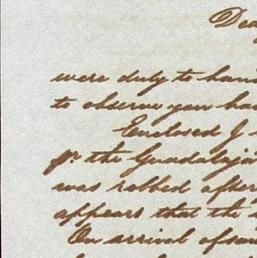 Dea
were duly to han
to observe you ha
Enclosed I
pr. the Guadalaja
was robbed after
appears that the
On arrival of sa